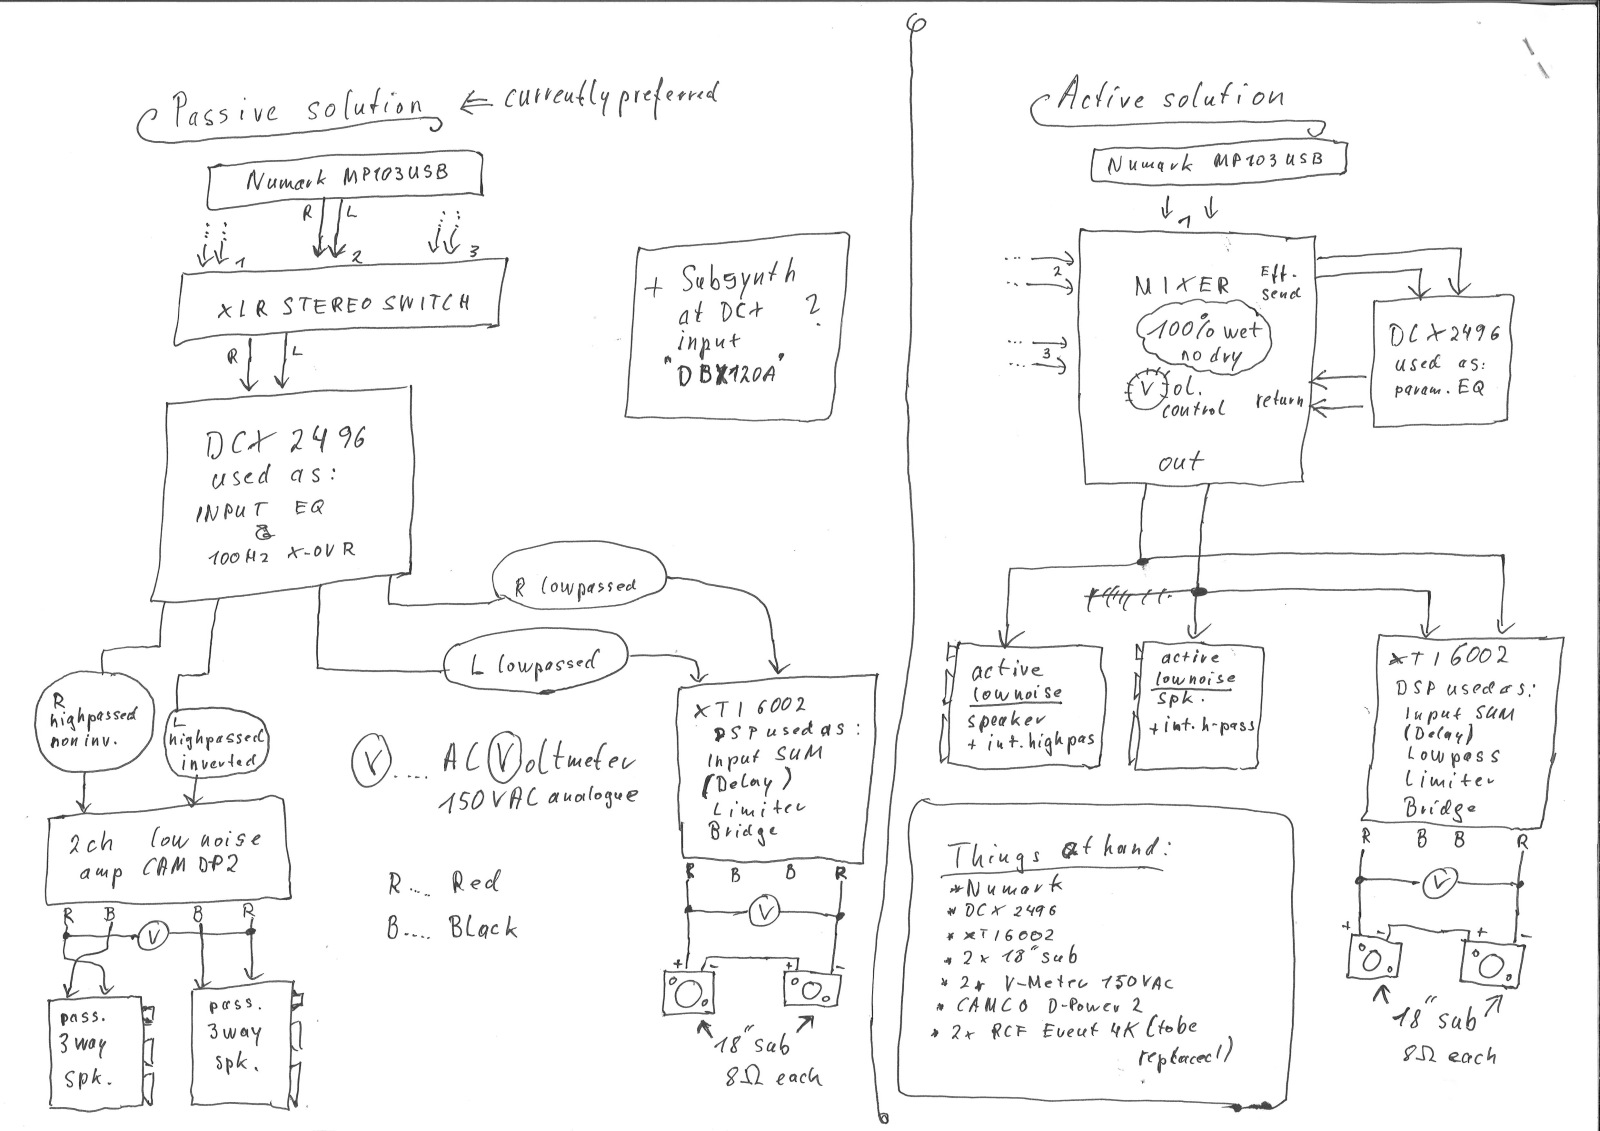 Passive solution ← currently preferred
Numark MP103USB
R L
1 2 3
XLR STEREO SWITCH
R L
DCX 2496
used as:
INPUT EQ
&
100Hz X-OVR
+ Subsynth
at DCX ?
input
"DBX120A"
R lowpassed
L lowpassed
R
highpassed
non inv.
L
highpassed
inverted
2ch low noise
amp CAM DP2
R B B R
V
pass.
3way
spk.
pass.
3way
spk.
V .... AC Voltmeter
150VAC analogue
R.... Red
B.... Black
XTI 6002
DSP used as:
Input SUM
(Delay)
Limiter
Bridge
R B B R
V
+ - + -
18" sub
8Ω each
Active solution
Numark MP103USB
1
2
3
MIXER
Eff.
send
100% wet
no dry
Vol.
control
return
out
DCX2496
used as:
param. EQ
active
lownoise
speaker
+ int. highpas
active
lownoise
spk.
+ int. h-pass
XTI 6002
DSP used as:
Input SUM
(Delay)
Lowpass
Limiter
Bridge
R B B R
V
+ - + -
18" sub
8Ω each
Things at hand:
* Numark
* DCX 2496
* XTI6002
* 2x 18" sub
* 2x V-Meter 150VAC
* CAMCO D-Power 2
* 2x RCF Event 4K (to be
replaced!)